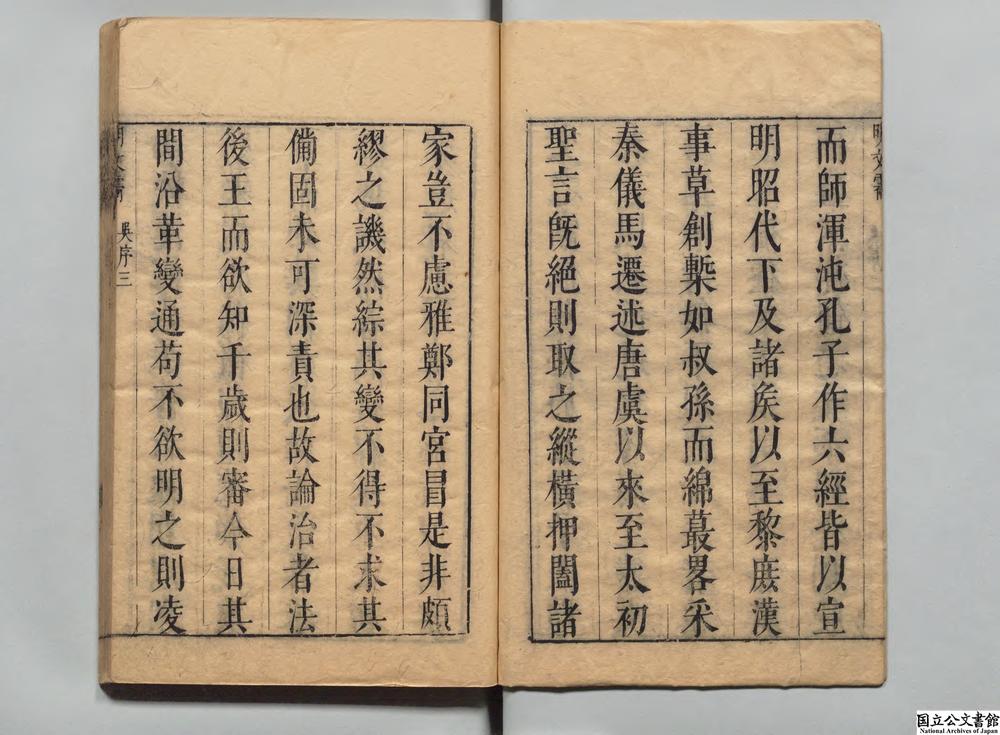 而師渾沌孔子作六經皆以宣
明昭代下及諸矦以至黎庶漢
事草創槧如叔孫而綿蕞畧采
秦儀馬遷述唐虞以來至太初
聖言既絕則取之縱橫押闔諸
家豈不慮雅鄭同宮冒是非頗
繆之譏然綜其變不得不求其
備固未可深責也故論治者法
後王而欲知千歲則審今日其
間沿革變通苟不欲明之則凌
吳序 三
国立公文書館
National Archives of Japan